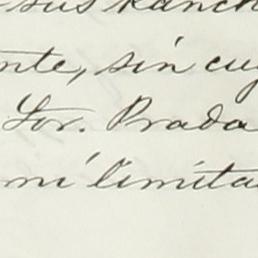 sus Ranch
nte, sin cuy
Sor. Prada
mi limita